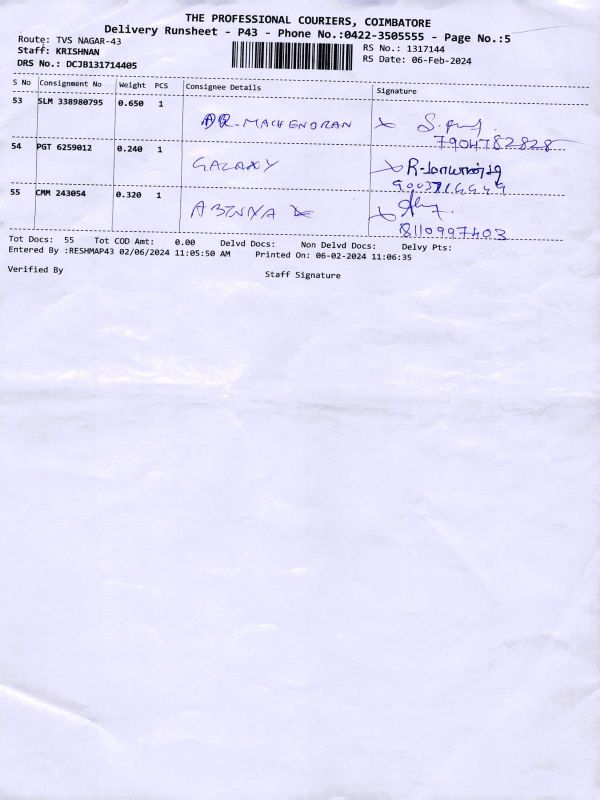 THE PROFESSIONAL COURIERS, COIMBATORE
Delivery Runsheet - P43 - Phone No.:0422-3505555 - Page No.:5
Route: TVS NAGAR-43
RS No.: 1317144
Staff: KRISHNAN
RS Date: 06-Feb-2024
DRS No.: DCJB131714405
S No Consignment No Weight PCS Consignee Details Signature
53 SLM 338980795 0.650 1
DR. MACHENDRAN
7904782828
54 PGT 6259012 0.240 1
GALAXY
55 CMM 243054 0.320 1
ABINYA
8110997403
Tot Docs: 55 Tot COD Amt: 0.00 Delvd Docs: Non Delvd Docs: Delvy Pts:
Entered By :RESHMAP43 02/06/2024 11:05:50 AM Printed On: 06-02-2024 11:06:35
Verified By
Staff Signature